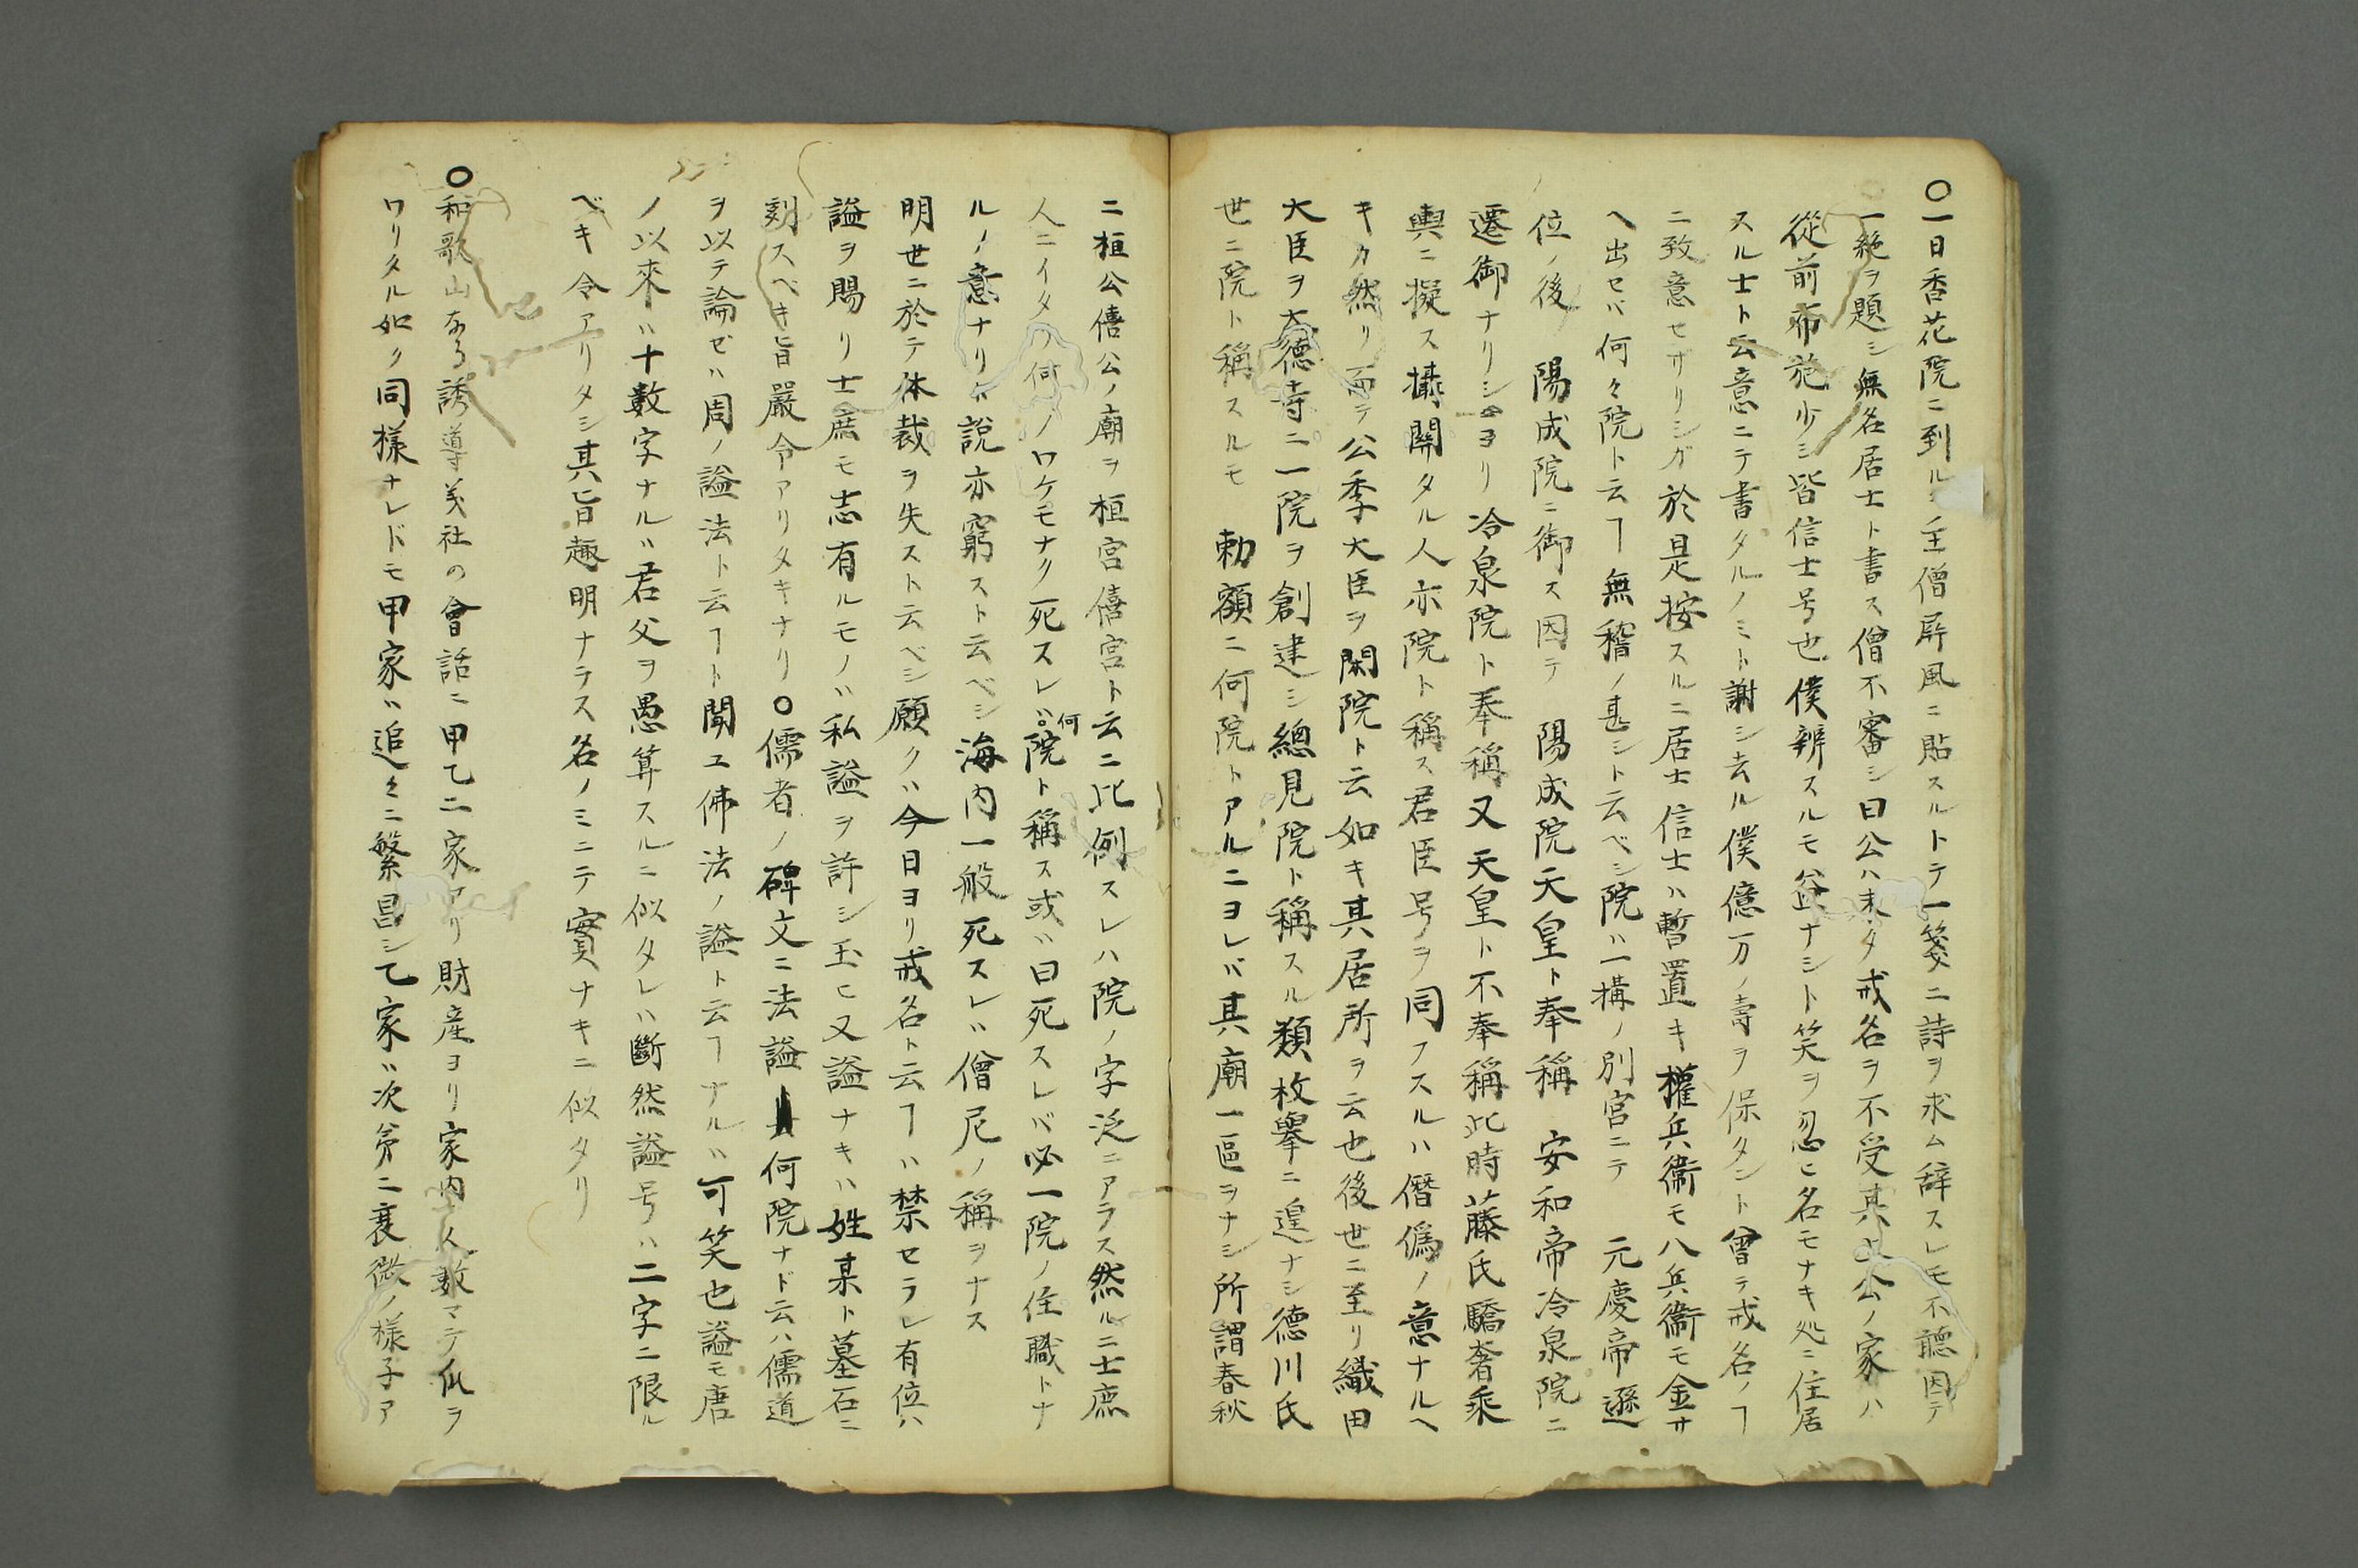 ○一日香花院ニ到ル主僧屏風ニ貼スルトテ一箋ニ詩ヲ求ム辞スレモ不聴因テ
一絶ヲ題シ無名居士ト書ス僧不審シ曰公ハ未タ戒名ヲ不受其上公ノ家ハ
従前布施少シ皆信士号也僕辨スルモ益ナシト笑ヲ忍ヒ名モナキ処ニ住居
スル士ト云意ニテ書タルノミト謝シ去ル僕億万ノ壽ヲ保タント曾テ戒名ノヿ
ニ致意セサリシガ於是按スルニ居士信士ハ暫置キ權兵衞モ八兵衞モ金サ
ヘ出セバ何々院ト云ヿ無稽ノ甚シト云ベシ院ハ一構ノ別宮ニテ　元慶帝遜
位ノ後　陽成院ニ御ス因テ　陽成院天皇ト奉稱　安和帝冷泉院ニ
遷御ナリシヨリ冷泉院ト奉稱又天皇ト不奉稱此時藤氏驕奢乘
輿ニ擬ス攝關タル人亦院ト稱ス君臣号ヲ同フスルハ僭僞ノ意ナルヘ
キカ然リ而テ公季大臣ヲ閑院ト云如キ其居所ヲ云也後世ニ至リ織田
大臣ヲ大德寺ニ一院ヲ創建シ總見院ト稱スル類枚擧ニ遑ナシ德川氏
世ニ院ト稱スルモ　勅額ニ何院トアルニヨレバ其廟一區ヲナシ所謂春秋
ニ桓公僖公ノ廟ヲ桓宮僖宮ト云ニ比例スレハ院ノ字泛ニアラス然ルニ士庶
人ニイタリ何ノワケモナク死スレハ何院ト稱ス或ハ曰死スレバ必一院ノ住職トナ
ルノ意ナリ此説亦窮スト云ベシ海内一般死スレハ僧尼ノ稱ヲナス
明世ニ於テ体裁ヲ失スト云ベシ願クハ今日ヨリ戒名ト云ヿハ禁セラレ有位ハ
謚ヲ賜リ士庶モ志有ルモノハ私謚ヲ許シ玉ヒ又謚ナキハ姓某ト墓石ニ
刻スベキ旨嚴令アリタキナリ○儒者ノ碑文ニ法謚何院ナド云ハ儒道
ヲ以テ論ゼハ周ノ謚法ト云ヿト聞エ佛法ノ謚ト云ヿナルハ可笑也謚モ唐
ノ以來ハ十數字ナルハ君父ヲ愚算スルニ似タレハ斷然謚号ハ二字ニ限ル
ベキ令アリタシ其旨趣明ナラス名ノミニテ實ナキニ似タリ
○和歌山なる誘導義社の會話ニ甲乙二家アリ財産ヨリ家内ノ人數マテ似ヲ
ワリタル如ク同樣ナレドモ甲家ハ追々ニ繁昌シ乙家ハ次第ニ衰微ノ樣子ア